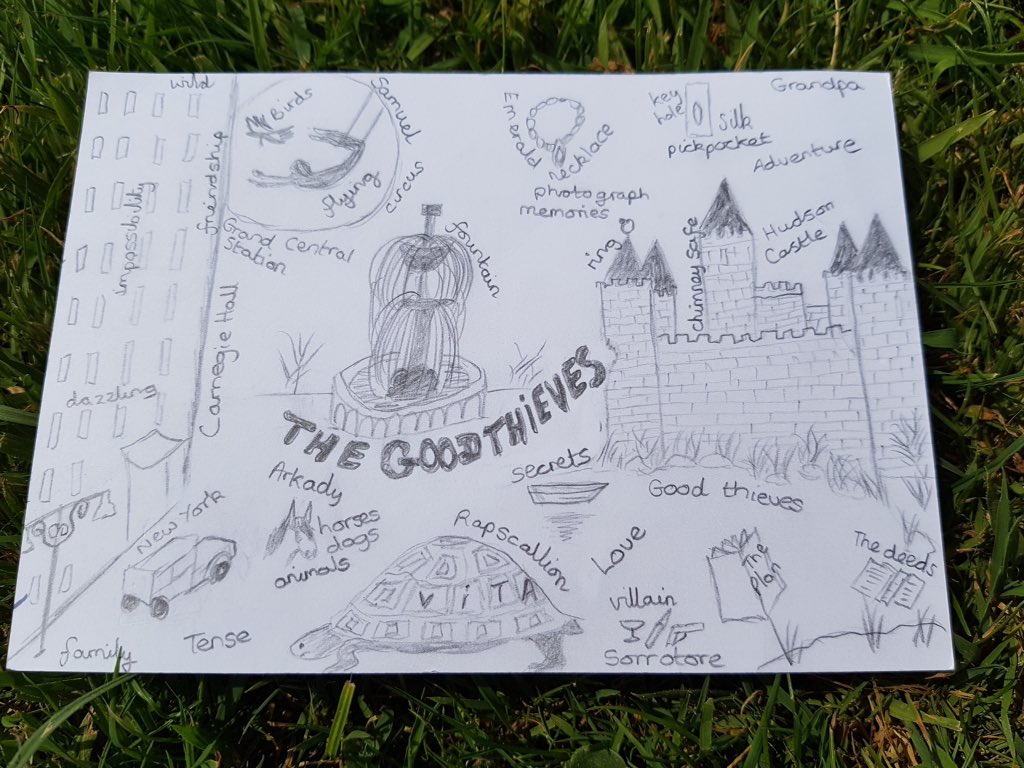 wild
Birds
Samuel
flying
circus
friendship
impossibility
Grand Central
Station
Carnegie Hall
dazzling
Emerald
necklace
photograph
memories
key
hole
silk
pickpocket
Grandpa
Adventure
fountain
ring
chimney safe
Hudson
Castle
THE GOOD THIEVES
Arkady
horses
dogs
animals
New York
family
Tense
Rapscallion
VITA
secrets
Good thieves
Love
villain
Sorrotore
The
plan
The deeds